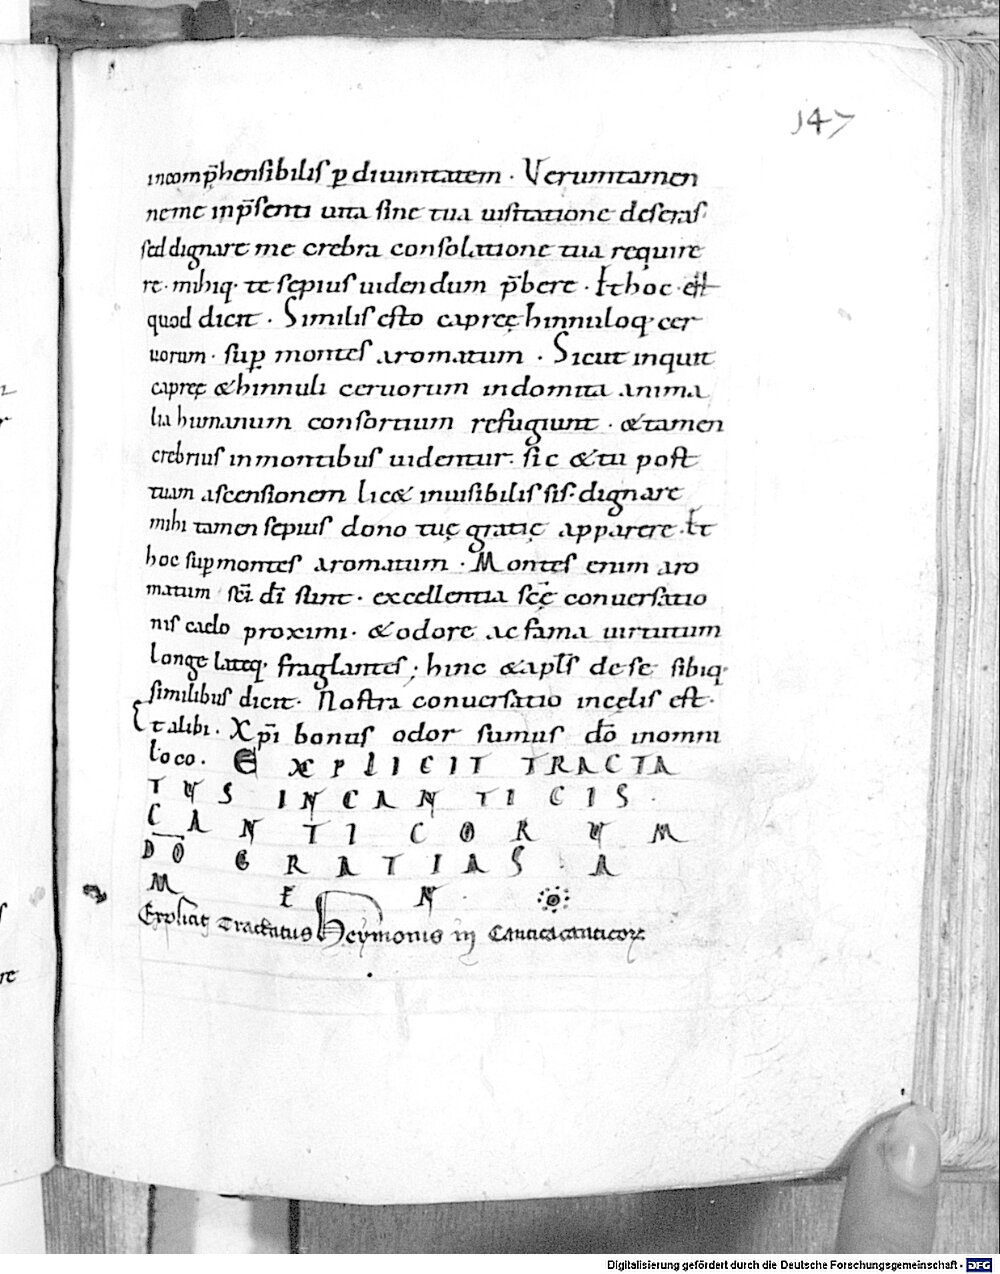 147
incomp̄hensibilis ꝑ diuinitatem · Verumtamen
neme inp̄senti uita sine tua uisitatione deseras·
sed dignare me crebra consolatione tua require
re · mihiq· te sepius uidendum p̄bere · Et hoc est
quod dicit · Similis esto capreę hinnuloq· cer
uorum · suꝑ montes aromatum · Sicut inquit
capreę & hinnuli ceruorum indomita anima
lia humanum consortium refugiunt · & tamen
crebrius inmontibus uidentur · sic & tu post
tuam ascensionem lic& inuisibilis sis · dignare
mihi tamen sepius dono tuę gratię apparere · Et
hoc suꝑ montes aromatum · Montes enim aro
matum sc̄i dī sunt · excellentia sc̄ę conuersatio
nis caelo proximi · & odore ac fama uirtutum
longe lateq· fraglantes ; hinc & apls̄ de se sibiq·
similibus dicit · Nostra conuersatio incęlis est ·
& alibi · Xp̄i bonus odor sumus dō inomni
loco . EXPLICIT TRACTA
TUS IN CANTICIS
CANTICORUM
DŌ GRATIAS A
MEN
Explicit Tractatus Heymonis in Cantica canticoꝝ
Digitalisierung gefördert durch die Deutsche Forschungsgemeinschaft - DFG